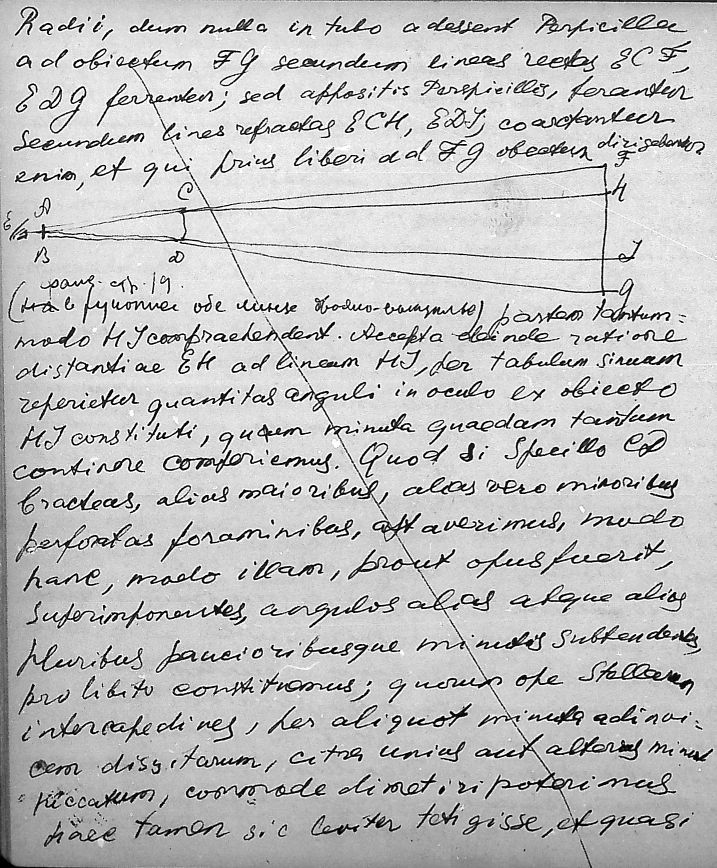 Radii, dum nulla in tubo adessent Perpicilla
ad obiectum FG secundum lineas rectas ECF,
EDG ferrentur; sed appositis Perspicillis, ferantur
secundum lines refractas ECH, EDI, coarctantur
enim, et qui prius liberi ad FG obiectum dirigebantur
F
C
A
H
E
B
D
I
G
стр. 19.
(в рукописи обе линзы) partem tantum=
modo HI compraehendent. Accepta deinde ratione
distantiae EH ad lineam HI, per tabulam sinuum
reperietur quantitas anguli in oculo ex obiecto
HI constituti, quem minuta quaedam tantum
continere comperiemus. Quod si Specillo CD
bracteas, alias maioribus, alias vero minoribus
perforatas foraminibus, aptaverimus, modo
hanc, modo illam, prout opus fuerit,
superimponentes, angulos alios atque alios
pluribus paucioribusque minutis subtendentes,
pro libito constituemus; quorum ope Stellarum
intercapedines, per aliquot minuta adinvi=
cem dissitarum, citra unius aut alterius minuti
peccatum, commode dimetiri poterimus
haec tamen sic leviter tetigisse, et quasi